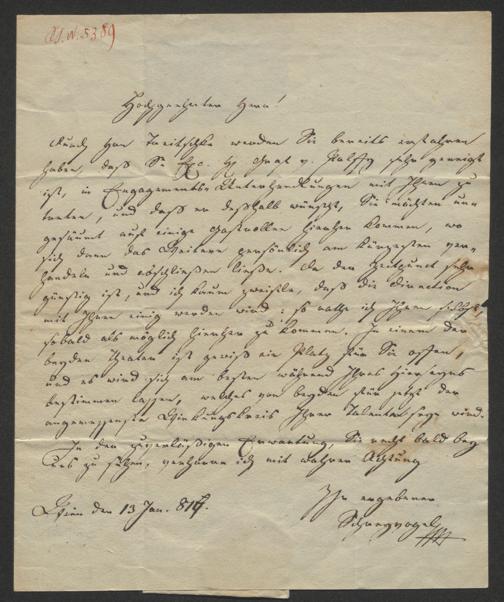 Hochgeehrter Herr!
Durch Hrn Treitschke werden Sie bereits erfahren
haben, daß Se. Exc. Hr Graf v. Palffy sehr geneigt
ist, in Engagements Unterhandlungen mit Ihnen zu
treten, und daß er deßhalb wünscht, Sie möchten
auf einige Gastrollen hierher kommen, wo
sich dann das Weitere persönlich am kürzesten ver-
handeln und abschließen ließe. Da der Zeitpunct sehr
günstig ist, und ich kaum zweifle, daß die Direction
mit Ihnen einig werden wird: so rathe ich Ihnen selbst,
sobald als möglich hierher zu kommen. In einem der
beyden Theater ist gewiß ein Platz für Sie offen,
und es wird sich am besten während Ihres Hierseyns
bestimmen lassen, welches von beyden für jetzt der
angemessenste Wirkungskreis Ihrer Talente seyn wird.
In der zuverlässigen Erwartung, Sie recht bald bey
uns zu sehen, verharre ich mit wahrer Achtung
Ihr ergebener
Schreyvogel
Wien den 13 Jan.